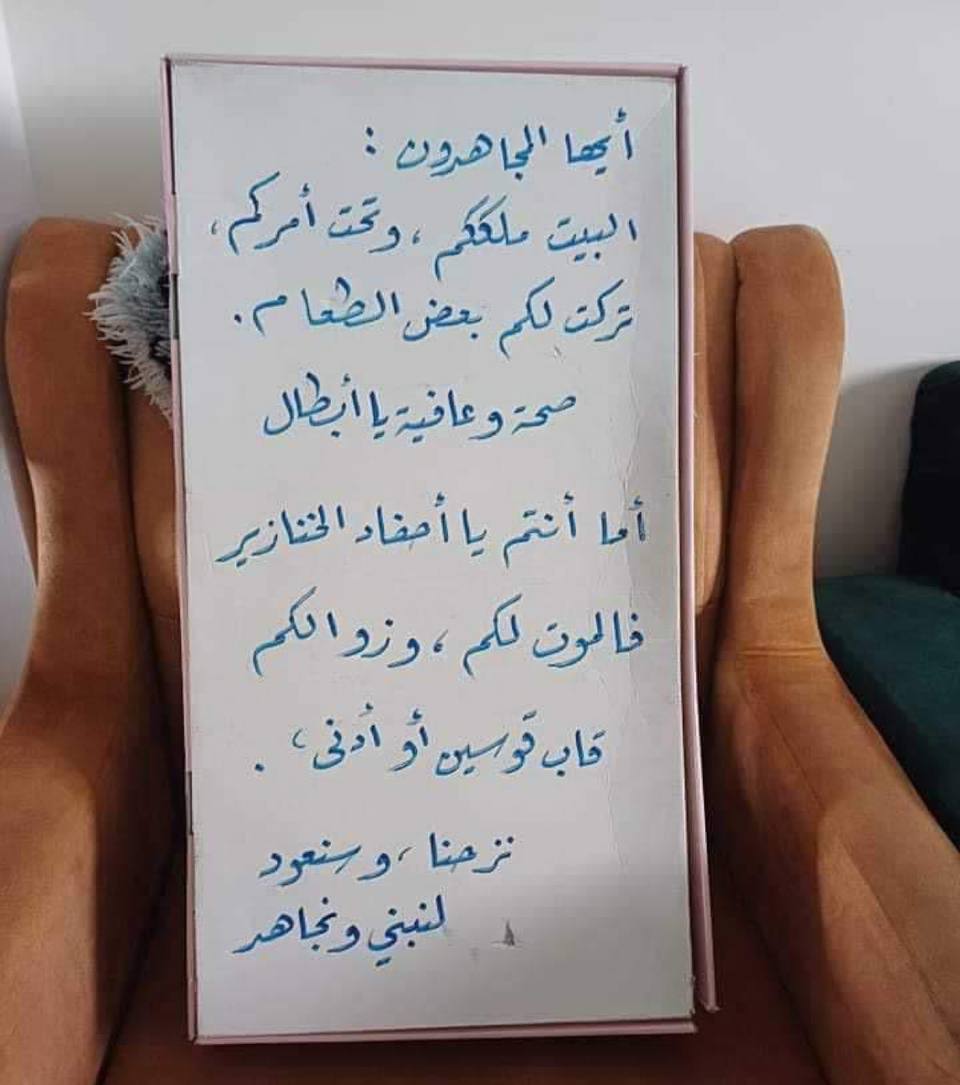 أيها المجاهدون :
البيت ملككم ، وتحت أمركم ،
تركت لكم بعض الطعام .
صحة وعافية يا أبطال
أما أنتم يا أحفاد الخنازير
فالموت لكم ، وزوالكم
قاب قوسين أو أدنى ، .
نزحنا ، وسنعود
لنبني ونجاهد